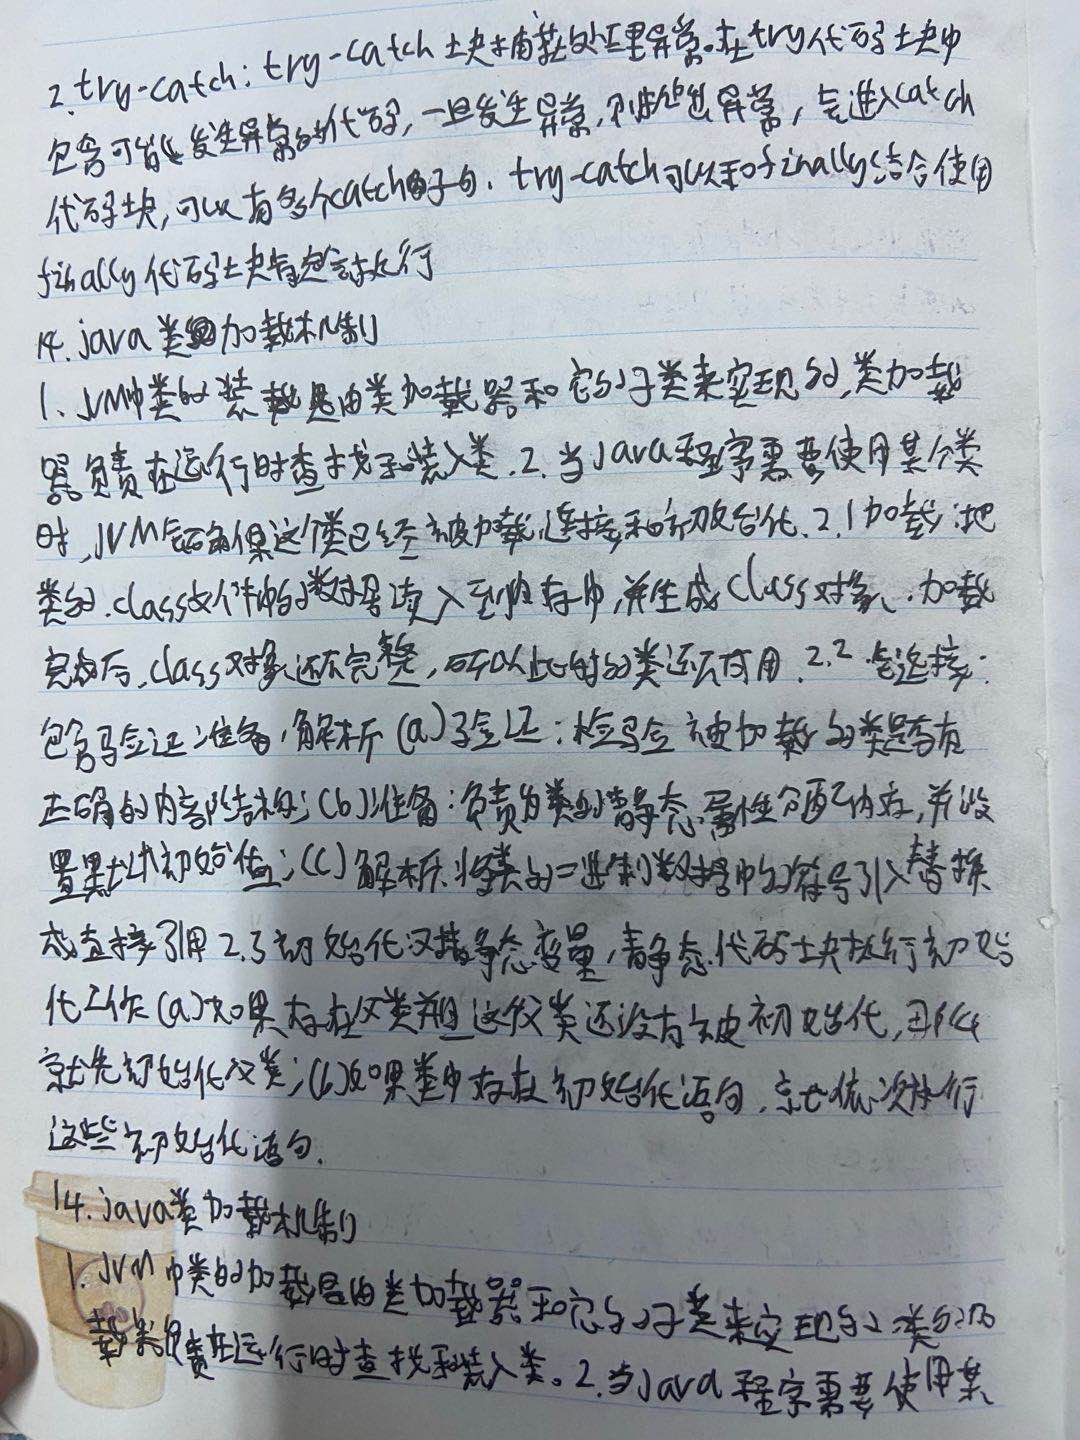 2.try-catch：try-catch块捕获处理异常。在try代码块中
包含可能发生异常的代码，一旦发生异常，则抛出异常，会进入catch
代码块，可以有多个catch子句．try-catch可以和finally结合使用
finally代码块总会执行
14.java类加载机制
1、JVM中类的装载是由类加载器和它的子类来实现的，类加载
器负责在运行时查找和装入类．2.当java程序需要使用某个类
时，JVM会确保这个类已经被加载、连接和初始化．2.1加载：把
类的.class文件中的数据读入到内存中，并生成Class对象．加载
完成后，Class对象还不完整，所以此时的类还不可用．2.2连接：
包含验证、准备、解析(a)验证：检验被加载的类是否有
正确的内部结构；(b)准备：负责为类的静态属性分配内存，并设
置默认初始值；(c)解析：将类的二进制数据中的符号引入替换
成直接引用2.3初始化对静态变量，静态代码块执行初始
化工作(a)如果存在父类并且这个父类还没有被初始化，那么
就先初始化父类；(b)如果类中存在初始化语句，就依次执行
这些初始化语句．
14.java类加载机制
1.JVM中类的加载是由类加载器和它的子类来实现的 类的加
载器负责在运行时查找和装入类。2.当java程序需要使用某